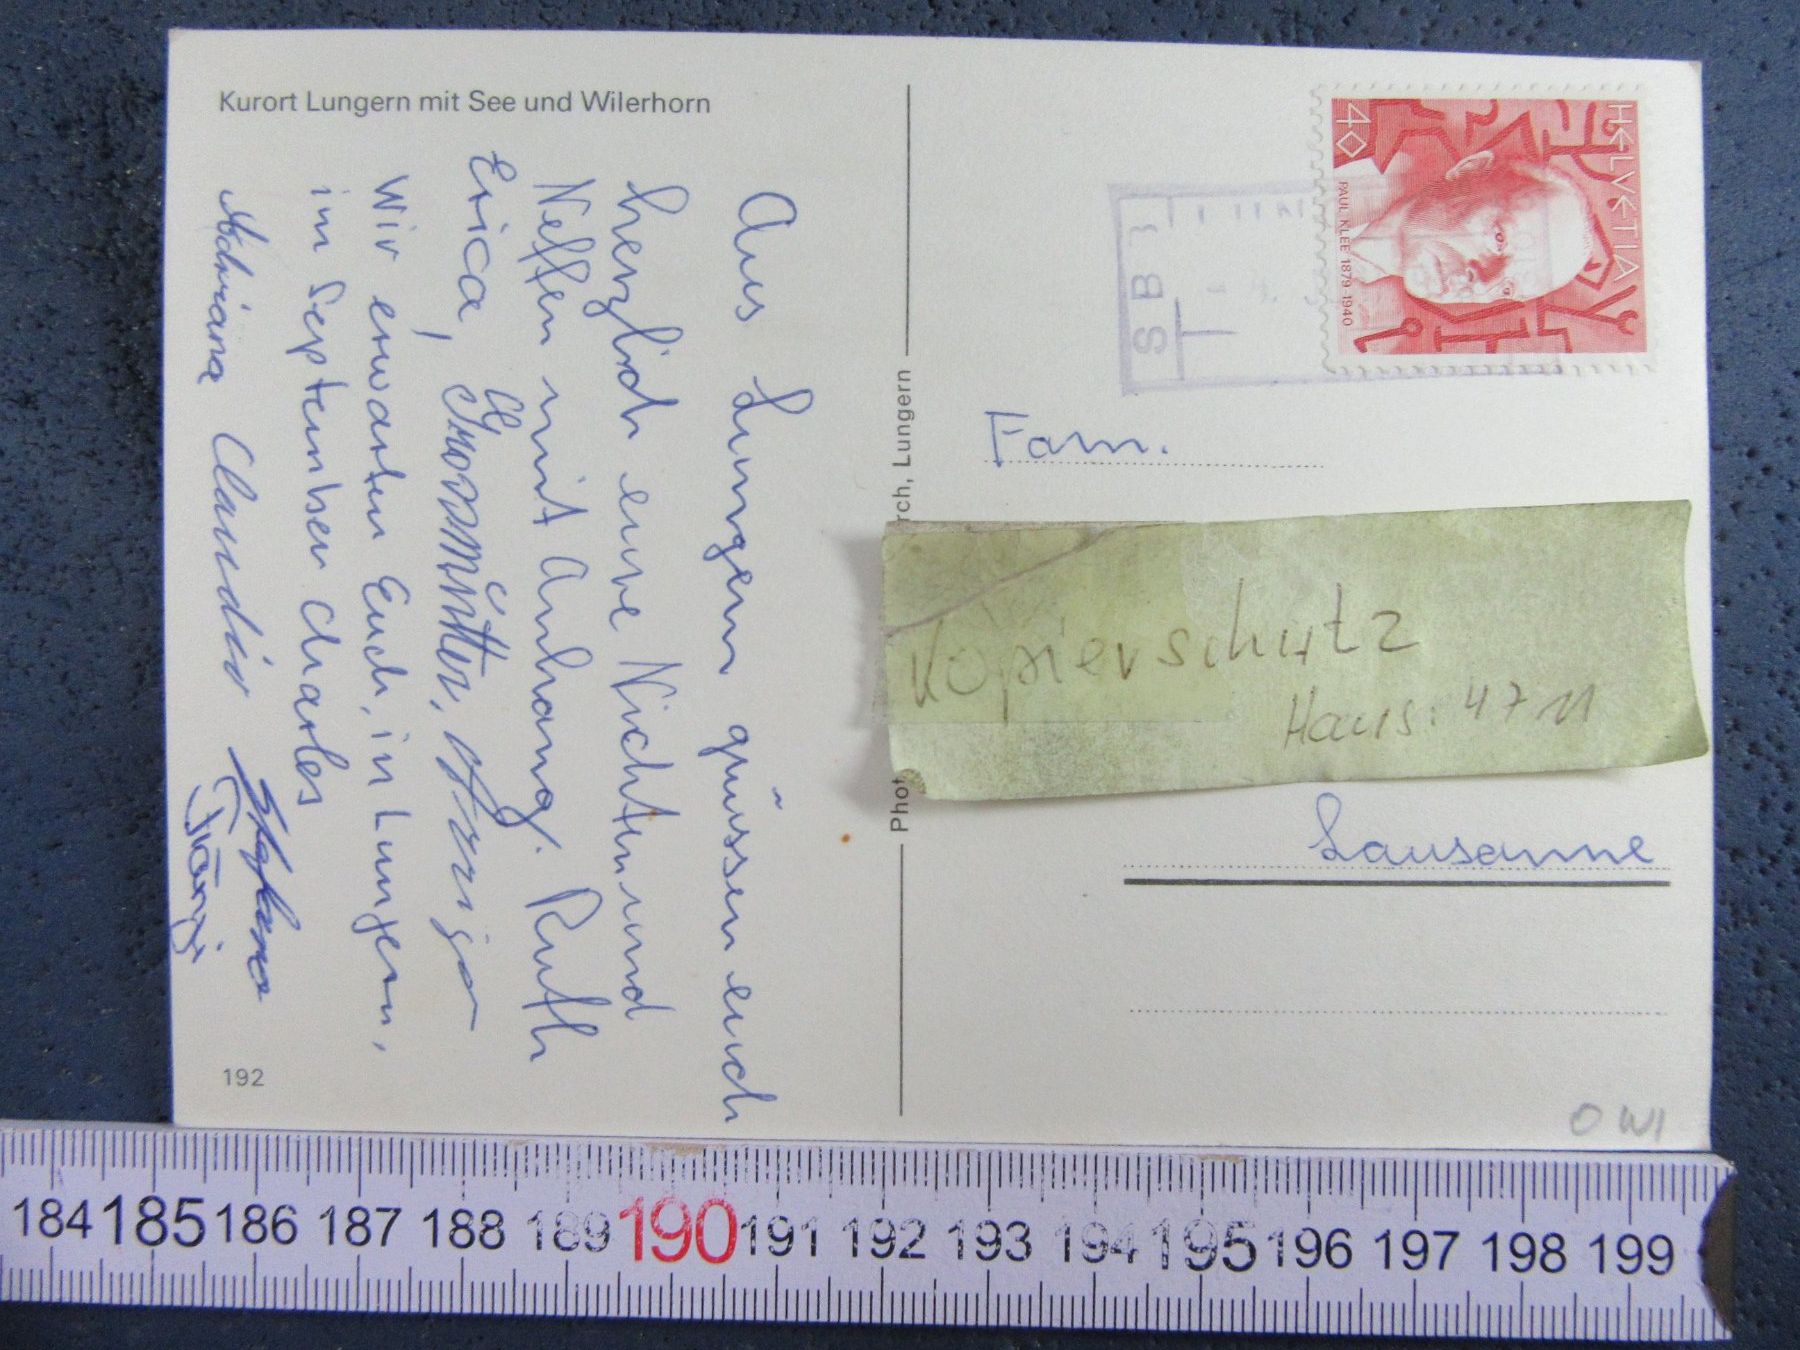 Kurort Lungern mit See und Wilerhorn
Aus Lungern grüssen euch
herzlich eure Nichten und
Neffen mit Anhang. Ruth
Erica,
Wir erwarten Euch, in Lungern,
im September Charles
Adriana Claudio
192
rch, Lungern
Phot
HELVETIA
40
PAUL KLEE 1879-1940
SBB
Fam.
Kopierschutz
Hans: 4711
Lausanne
OWI
184 185 186 187 188 189 190 191 192 193 194 195 196 197 198 199